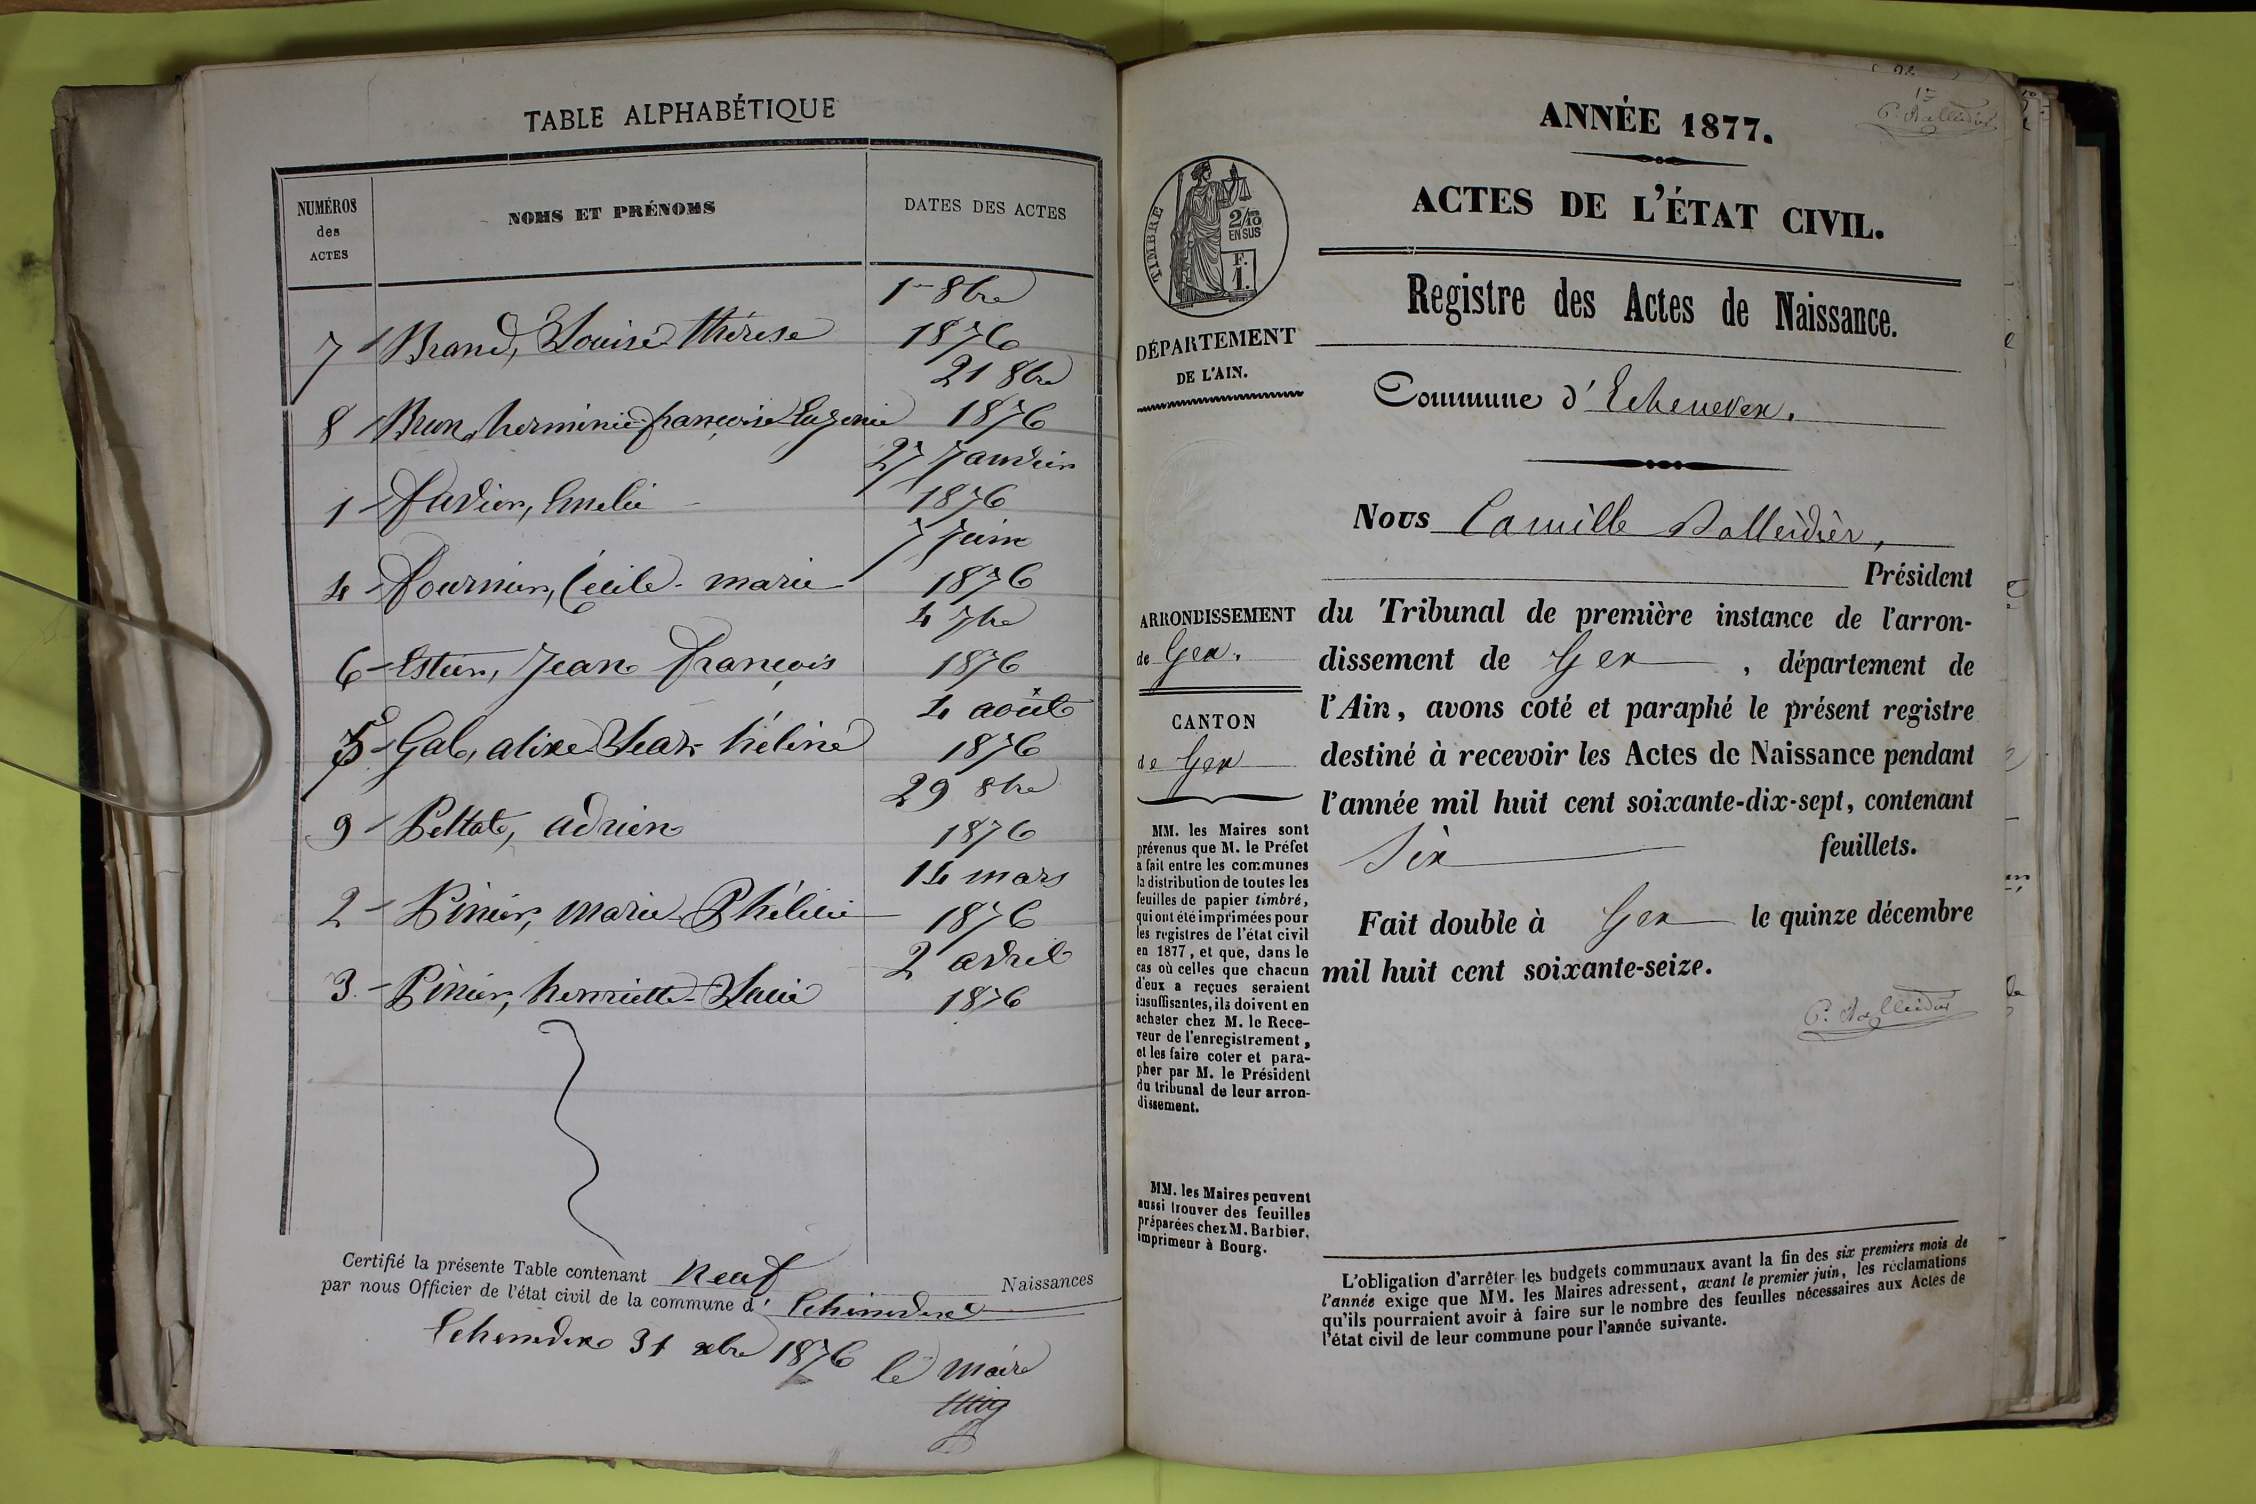 TABLE ALPHABÉTIQUE
NUMÉROS
des
ACTES
NOMS ET PRÉNOMS
DATES DES ACTES
7 Brand, Louise Thérese 1er 8bre 1876
8 Brun, herminie françoise Eugenie 21 8bre 1876
1 Favier, Emelie 27 Janvier 1876
4 Fournier, Cécile marie 7 Juin 1876
6 Estier, Jean François 4 7bre 1876
5 Gal, alixe héléne 4 août 1876
9 Peltat, adrien 29 8bre 1876
2 Pinier, marie Phélicie 14 mars 1876
3 Pinier, henriette 2 avril 1876
Certifié la présente Table contenant Neuf Naissances
par nous Officier de l'état civil de la commune d' Echenevex
Echenevex 31 xbre 1876 le Maire
ANNÉE 1877.
ACTES DE L'ÉTAT CIVIL.
Registre des Actes de Naissance.
TIMBRE
2/10
EN SUS
F.
1.
DÉPARTEMENT
DE L'AIN.
Commune d' Echenevex.
Nous Camille Dalleidier,
Président
du Tribunal de première instance de l'arron-
dissement de Gex, département de
l'Ain, avons coté et paraphé le présent registre
destiné à recevoir les Actes de Naissance pendant
l'année mil huit cent soixante-dix-sept, contenant
Six feuillets.
Fait double à Gex le quinze décembre
mil huit cent soixante-seize.
ARRONDISSEMENT
de Gex.
CANTON
de Gex
MM. les Maires sont
prévenus que M. le Préfet
a fait entre les communes
la distribution de toutes les
feuilles de papier timbré,
qui ont été imprimées pour
les registres de l'état civil
en 1877, et que, dans le
cas où celles que chacun
d'eux a reçues seraient
insuffisantes, ils doivent en
acheter chez M. le Rece-
veur de l'enregistrement,
et les faire coter et para-
pher par M. le Président
du tribunal de leur arron-
dissement.
MM. les Maires peuvent
aussi trouver des feuilles
préparées chez M. Barbier,
imprimeur à Bourg.
L'obligation d'arrêter les budgets communaux avant la fin des six premiers mois de
l'année exige que MM. les Maires adressent, avant le premier juin, les réclamations
qu'ils pourraient avoir à faire sur le nombre des feuilles nécessaires aux Actes de
l'état civil de leur commune pour l'année suivante.